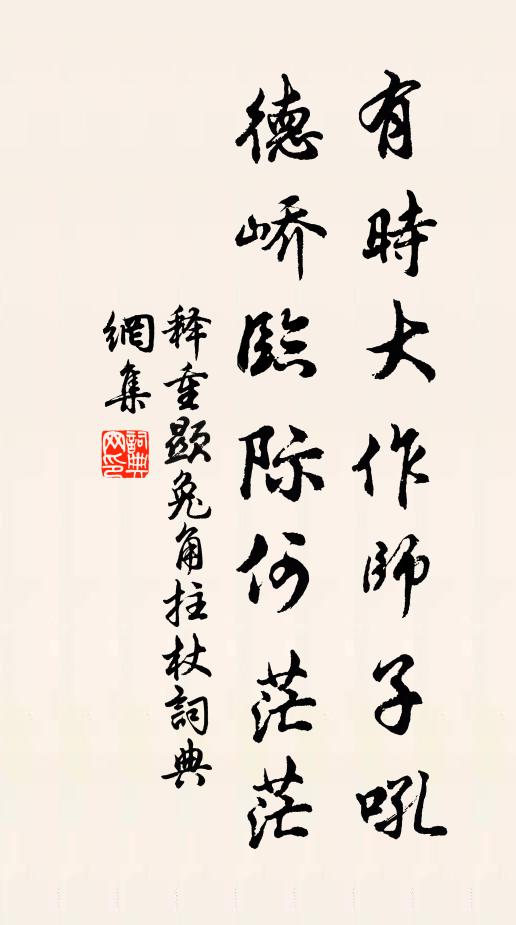 有時大作師子吼
德嶠臨际何茫茫
释重顯兔角拄杖詞典
網集
詞典网印